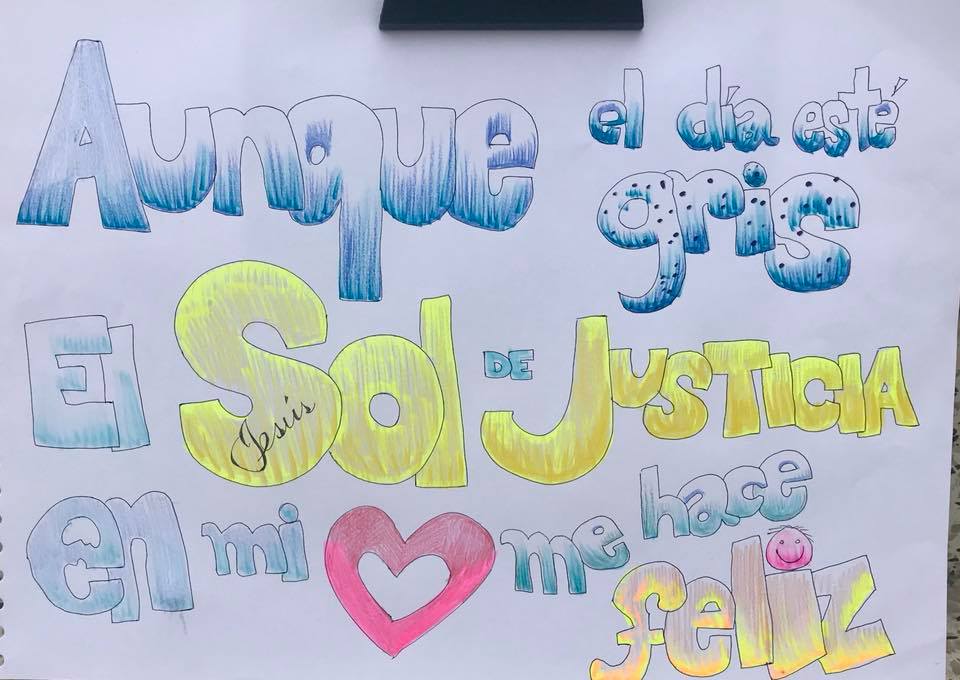 Aunque el día esté
gris
El Sol DE JUSTICIA
Jesús
en mi me hace
feliz